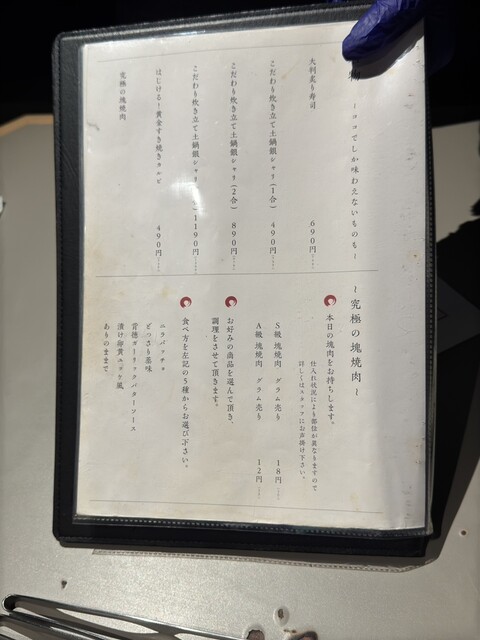 物 ～ココでしか味わえないものも～
大判炙り寿司 690円
こだわり炊き立て土鍋銀シャリ(1合) 490円
こだわり炊き立て土鍋銀シャリ(2合) 890円
こだわり炊き立て土鍋銀シャリ 1190円
はじける！黄金すき焼きカルビ 490円
究極の塊焼肉
～究極の塊焼肉～
本日の塊肉をお持ちします。
仕入れ状況により部位が異なりますので
詳しくはスタッフにお声掛け下さい。
S級 塊焼肉 グラム売り 18円
A級 塊焼肉 グラム売り 12円
お好みの商品を選んで頂き、
調理をさせて頂きます。
食べ方を左記の5種からお選び下さい。
ニラバッチャ
どっさり薬味
背徳ガーリックバターソース
漬け卵黄ユッケ風
ありのままで